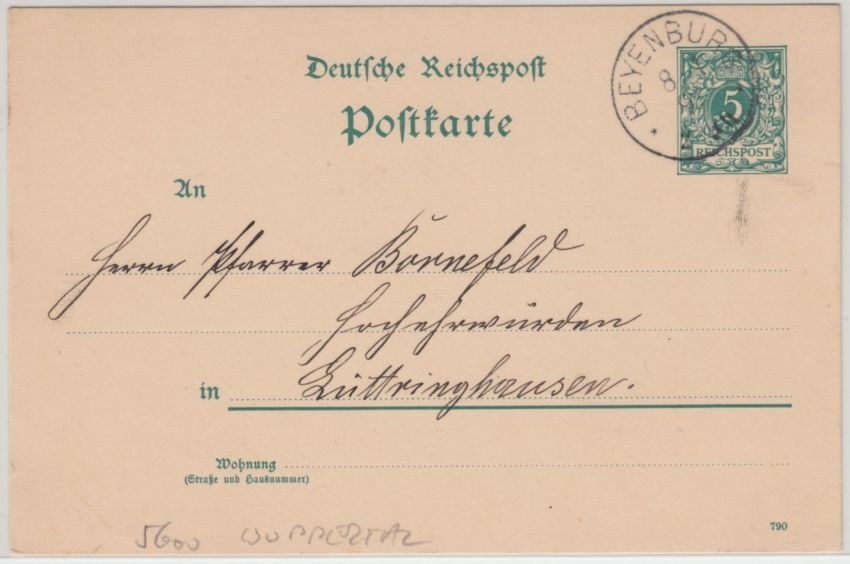 Deutsche Reichspost
Postkarte
BEYENBURG
8
5
REICHSPOST
An
Herrn Pfarrer Bornefeld
Hochehrwürden
in Lüttringhausen.
Wohnung
(Straße und Hausnummer)
790
5600 WUPPERTAL